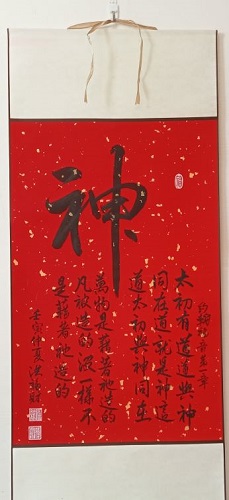 神
約翰福音第一章
太初有道道與神
同在道就是神這
道太初與神同在
萬物是藉著祂造的
凡被造的沒一樣不
是藉著祂造的
壬寅仲夏